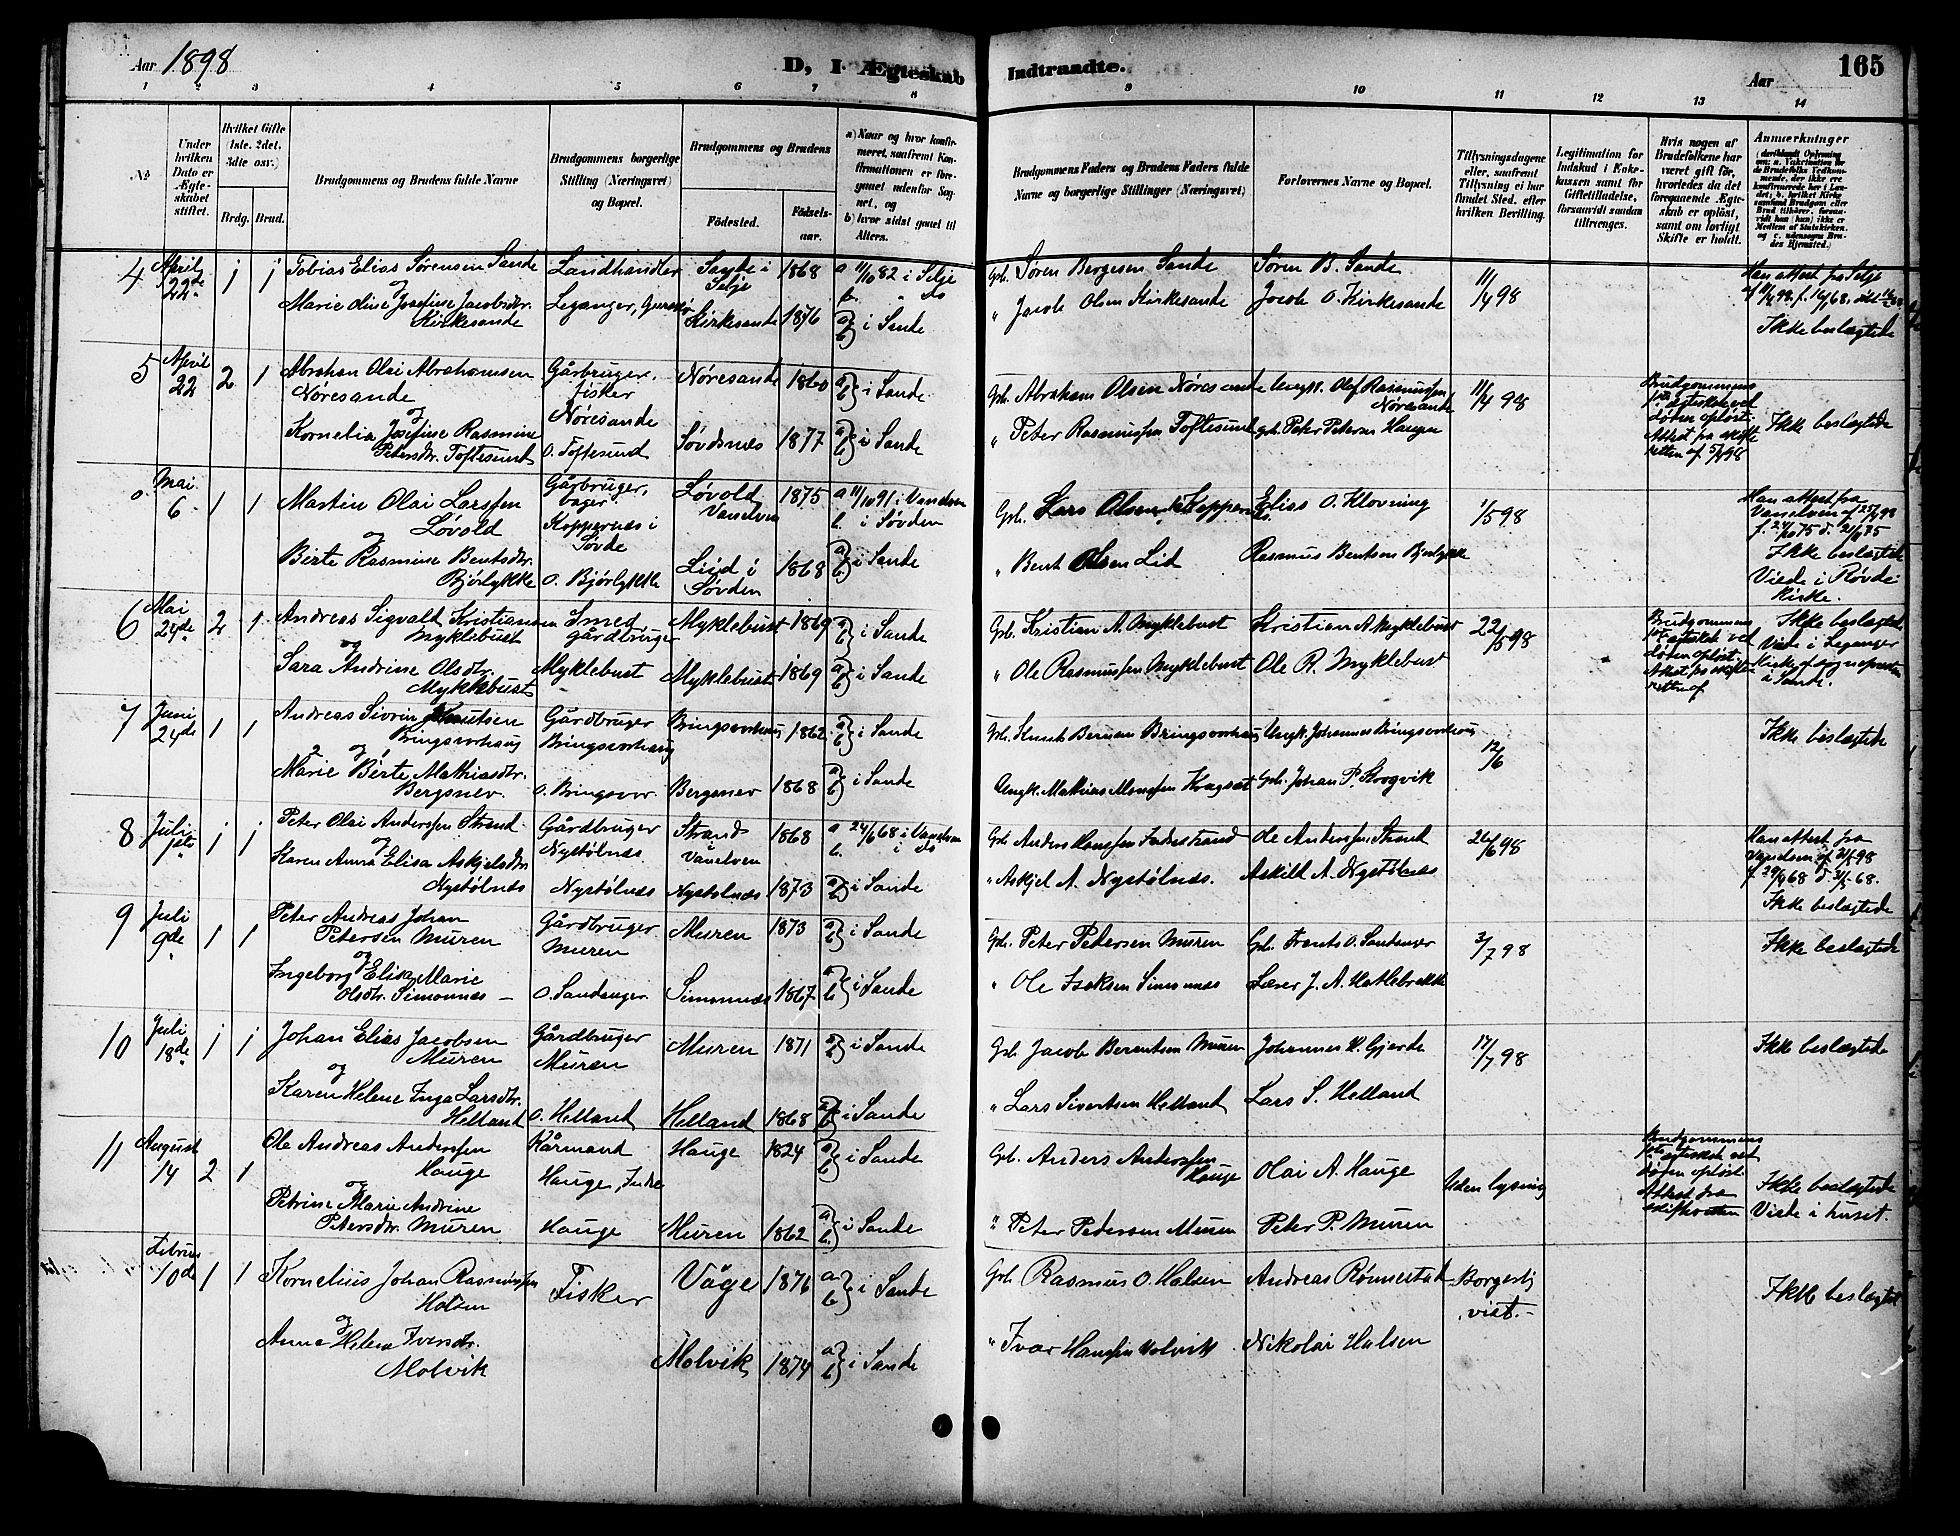 Aar 1898
D, I. Ægteskab
Indtraadte.
Aar
165
1 2 3 4 5 6 7 8 9 10 11 12 13 14
No
Under hvilken Dato er Ægteskabet stiftet.
Hvilket Gifte (1ste, 2det, 3die osv.).
Brdg. Brud.
Brudgommens og Brudens fulde Navne
Brudgommens borgerlige Stilling (Næringsvei) og Bopæl.
Brudgommens og Brudens
Fødested.
Fødselsaar.
a) Naar og hvor konfirmeret, saafremt Konfirmationen er foregaaet udenfor Sognet, og
b) hvor sidst gaaet til Alters.
Brudgommens Faders og Brudens Faders fulde Navne og borgerlige Stillinger (Næringsvei)
Forlovernes Navne og Bopæl.
Tillysningsdagene eller, saafremt Tillysning ei har fundet Sted, efter hvilken Bevilling.
Legitimation for Indskud i Enkekassen samt for Giftetilladelse, forsaavidt saadan tiltrænges.
Hvis nogen af Brudefolkene har været gift før, hvorledes da det foregaaende Ægteskab er opløst, samt om lovligt Skifte er holdt.
Anmærkninger
4 April 22de 1 1 Tobias Elias Sørensen Sande Landhandler i Selje 1868 a 11/10 82 i Selje Gb. Søren Bergesen Sande Søren B. Sande 11/4 98 Han attest fra Selje
og
Marie Oline Josefine Jacobsdtr. Kirkesande Leganger, Gurskø Kirkesande 1876 a b i Sande " Jacob Olsen Kirkesande Jacob O. Kirkesande Ikke beslægtede
5 April 22 2 1 Abraham Olai Abrahamsen Nøresande Gårbruger, fisker Nøresande Nøresande 1860 a b i Sande Gb. Abraham Olsen Nøresande Ungk. Olaf Rasmussen Nøresande 11/4 98 Brudgommens 1ste ægteskab ved døden opløst. Attest fra skifteretten af 5/4 98
og
Kornelia Josefine Rasmine Petersdtr. Toftesund O. Toftesund Søvdsnæs 1877 a b i Sande " Peter Rasmussen Toftesund gb. Peter Peterson Haugen Ikke beslægtede
Mai 6 1 1 Martin Olai Larssen Løvold Gårbruger, bager Koppernæs i Søvde Løvold Vanelven 1875 a 11/10 91 i Vanelven b. i Søvden Gb. Lars Olsen Koppernæs Elias O. Klovning 1/5 98 Han attest fra Vanelven af 25/4 98
og
Birte Rasmine Bentsdtr. Bjørlykke O. Bjørlykke Liid i Søvden 1868 a b i Sande " Bent Olsen Lid Rasmus Bentsen Bjørlykke Ikke beslægtede Viede i Røvde kirke.
6 Mai 24de 2 1 Andreas Sigvald Kristiansen Myklebust Smed gårdbruger Myklebust 1869 a b i Sande Gb. Kristian A. Myklebust Kristian A. Myklebust 22/5 98 Brudgommens 1ste ægteskab ved døden opløst. Attest fra skifteretten af Ikke beslægtede
og
Sara Andrine Olsdtr. Myklebust Myklebust Myklebust 1869 a b i Sande " Ole Rasmussen Myklebust Ole R. Myklebust Viede i Leganger Kirke af sognepresten i Sande.
7 Juni 24de 1 1 Andreas Sivrin Knutsen Bringsvorhaug Gårdbruger Bringsvorhaug Bringsvorhaug 1862 a b i Sande Gb. Knut Bernsen Bringsvorhaug Ungk. Johannes Bringsvorhaug 12/6 Ikke beslægtede
og
Marie Birte Mathiasdtr. Bergsnev. O. Bringsvor. Bergsnev 1868 a b i Sande Ungk. Mathias Monssen Kragset Gb. Johan P. Skogvik
8 Juli 1ste 1 1 Peter Olai Anderssen Strand Gårdbruger Nystølnæs Strand i Vanelven 1868 a 24/6 68 i Vanelven b. i do Gb. Anders Hanssen Indrestrand Ole Anderssen Strand 26/6 98 Han attest fra Vanelven af 21/6 98
og
Karen Anna Elisa Askjelsdtr. Nystølnæs Nystølnæs Nystølnæs 1873 a b i Sande " Askjel A. Nystølnæs. Askild A. Nystølnæs Ikke beslægtede
9 Juli 9de 1 1 Peter Andreas Johan Petersen Muren Gårdbruger Muren Muren 1873 a b i Sande Gb. Peter Pedersen Muren Gb. Frants O. Sandanger 3/7 98 Ikke beslægtede
og
Ingeborg Elisa Marie Olsdtr. Simonnes – O. Sandanger. Simonnæs 1867 a b i Sande " Ole Isaksen Simonnæs Lærer J. A. Hatlebrekke
10 Juli 18de 1 1 Johan Elias Jacobsen Muren Gårdbruger Muren Muren 1871 a b i Sande Gb Jacob Berentsen Muren Johannes H. Gjerde 17/7 98 Ikke beslægtede
og
Karen Helene Inga Larsdtr. Helland O. Helland Helland 1868 a b i Sande " Lars Sivertsen Helland Lars S. Helland
11 August 14 2 1 Ole Andreas Anderssen Hauge Kårmand Hauge, Indre Hauge 1824 a b i Sande Gb. Anders Anderssen Hauge Olai A. Hauge Uden lysning Brudgommens 1ste ægteskab ved døden opløst Attest fra skifteretten Ikke beslægtede Viede i huset.
og
Petrine Marie Andrine Petersdtr. Muren Hauge Muren 1862 a b i Sande " Peter Pedersen Muren Peter P. Muren
Februar 10de 1 1 Kornelius Johan Rasmussen Halsen Fisker Våge 1876 a b i Sande Gb. Rasmus O. Halsen Andreas Rønnestad Borgerlig viet. – Ikke beslægted
og
Anna Helena Iversdtr. Molvik Molvik 1874 a b i Sande " Ivar Hanssen Molvik Nikolai Halsen